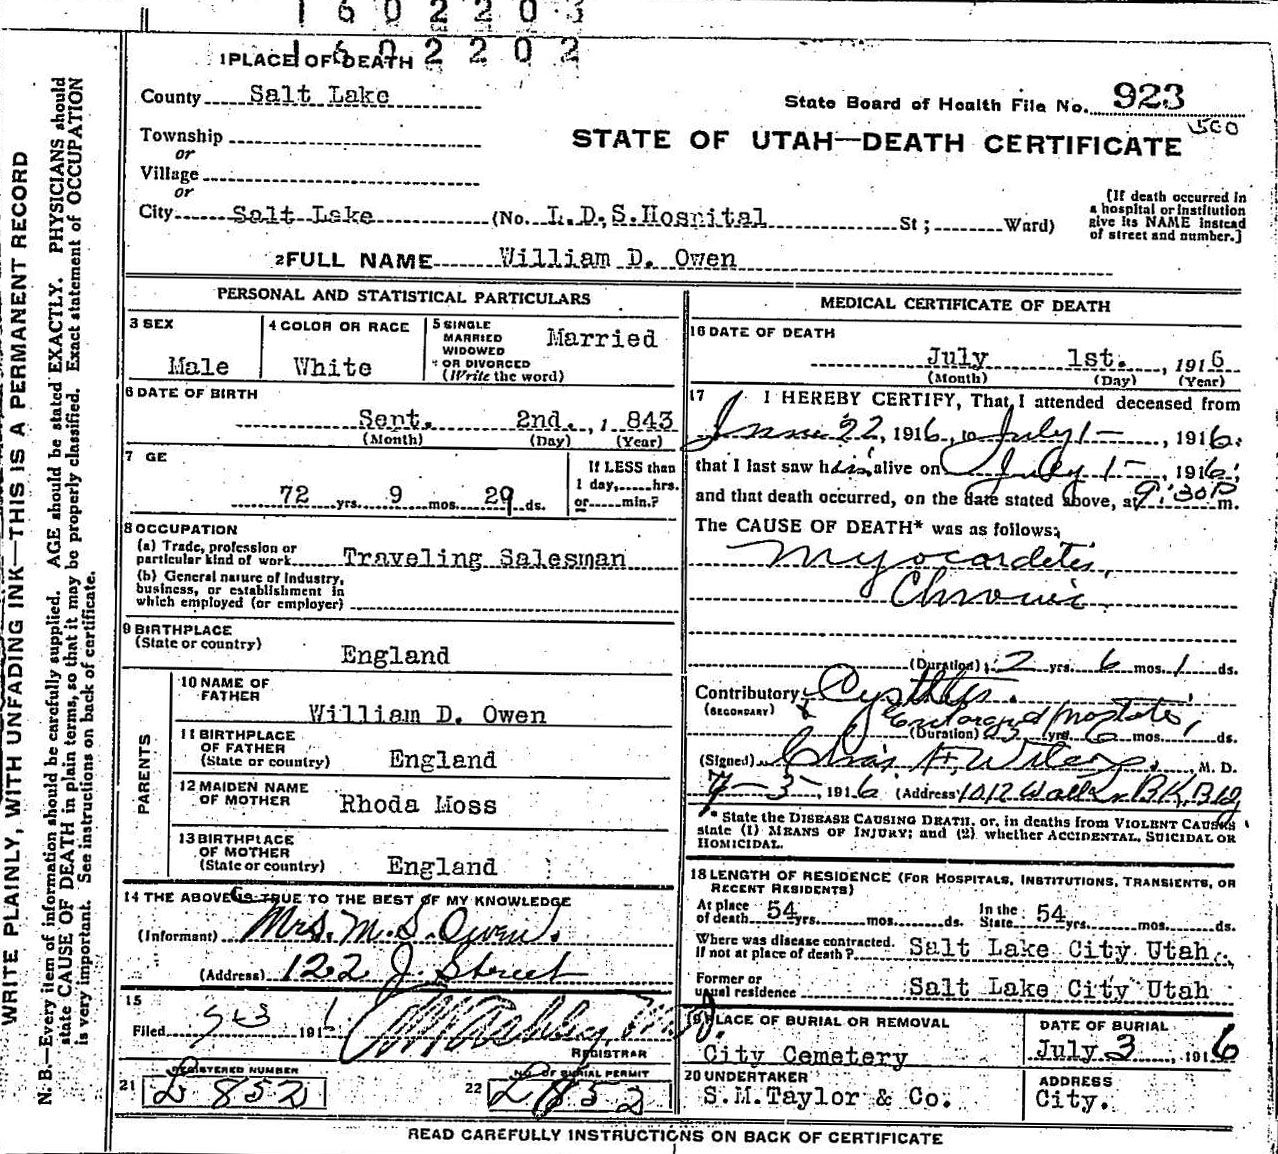 1602203
1602202
1 PLACE OF DEATH
County Salt Lake
State Board of Health File No. 923
500
Township
STATE OF UTAH—DEATH CERTIFICATE
or
Village
or
City Salt Lake (No. L.D.S.Hospital St; Ward)
(If death occurred in
a hospital or institution
give its NAME instead
of street and number.]
2 FULL NAME William D. Owen
PERSONAL AND STATISTICAL PARTICULARS
3 SEX
Male
4 COLOR OR RACE
White
5 SINGLE
MARRIED
WIDOWED
OR DIVORCED
(Write the word)
Married
6 DATE OF BIRTH
Sept. 2nd., 1843
(Month) (Day) (Year)
7 GE
72 yrs. 9 mos. 29 ds.
If LESS than
1 day, hrs.
or min.?
8 OCCUPATION
(a) Trade, profession or
particular kind of work Traveling Salesman
(b) General nature of Industry,
business, or establishment in
which employed (or employer)
9 BIRTHPLACE
(State or country)
England
PARENTS
10 NAME OF
FATHER
William D. Owen
11 BIRTHPLACE
OF FATHER
(State or country) England
12 MAIDEN NAME
OF MOTHER Rhoda Moss
13 BIRTHPLACE
OF MOTHER
(State or country) England
14 THE ABOVE IS TRUE TO THE BEST OF MY KNOWLEDGE
(Informant) Mrs. M. S. Owen.
(Address) 122 J. Street
15
Filed 7-3 1916
REGISTRAR
21 REGISTERED NUMBER
L 852
22 NO. OF BURIAL PERMIT
L 852
MEDICAL CERTIFICATE OF DEATH
16 DATE OF DEATH
July 1st., 1916
(Month) (Day) (Year)
17 I HEREBY CERTIFY, That I attended deceased from
June 22, 1916, to July 1-, 1916.
that I last saw him alive on July 1-, 1916;
and that death occurred, on the date stated above, at 9:30 P m.
The CAUSE OF DEATH* was as follows;
Myocardetis,
Chronic.
(Duration) 2 yrs. 6 mos. 1 ds.
Contributory Cystitis.
(SECONDARY) & Enlarged Prostate,
(Duration) yrs. 6 mos. ds.
(Signed) Chas. F. Wilcox. M. D.
7-3-, 1916 (Address) 1012 Walker BK. Bldg
* State the DISEASE CAUSING DEATH, or, in deaths from VIOLENT CAUSES
state (1) MEANS OF INJURY; and (2) whether ACCIDENTAL, SUICIDAL OR
HOMICIDAL.
18 LENGTH OF RESIDENCE (FOR HOSPITALS, INSTITUTIONS, TRANSIENTS, OR
RECENT RESIDENTS)
At place of death 54 yrs. mos. ds. In the State 54 yrs. mos. ds.
Where was disease contracted.
If not at place of death? Salt Lake City Utah.
Former or
usual residence Salt Lake City Utah
19 PLACE OF BURIAL OR REMOVAL
City Cemetery
DATE OF BURIAL
July 3, 1916
20 UNDERTAKER
S.M.Taylor & Co.
ADDRESS
City.
READ CAREFULLY INSTRUCTIONS ON BACK OF CERTIFICATE
WRITE PLAINLY, WITH UNFADING INK—THIS IS A PERMANENT RECORD
N. B.—Every item of information should be carefully supplied. AGE should be stated EXACTLY. PHYSICIANS should
state CAUSE OF DEATH in plain terms, so that it may be properly classified. Exact statement of OCCUPATION
is very important. See instructions on back of certificate.